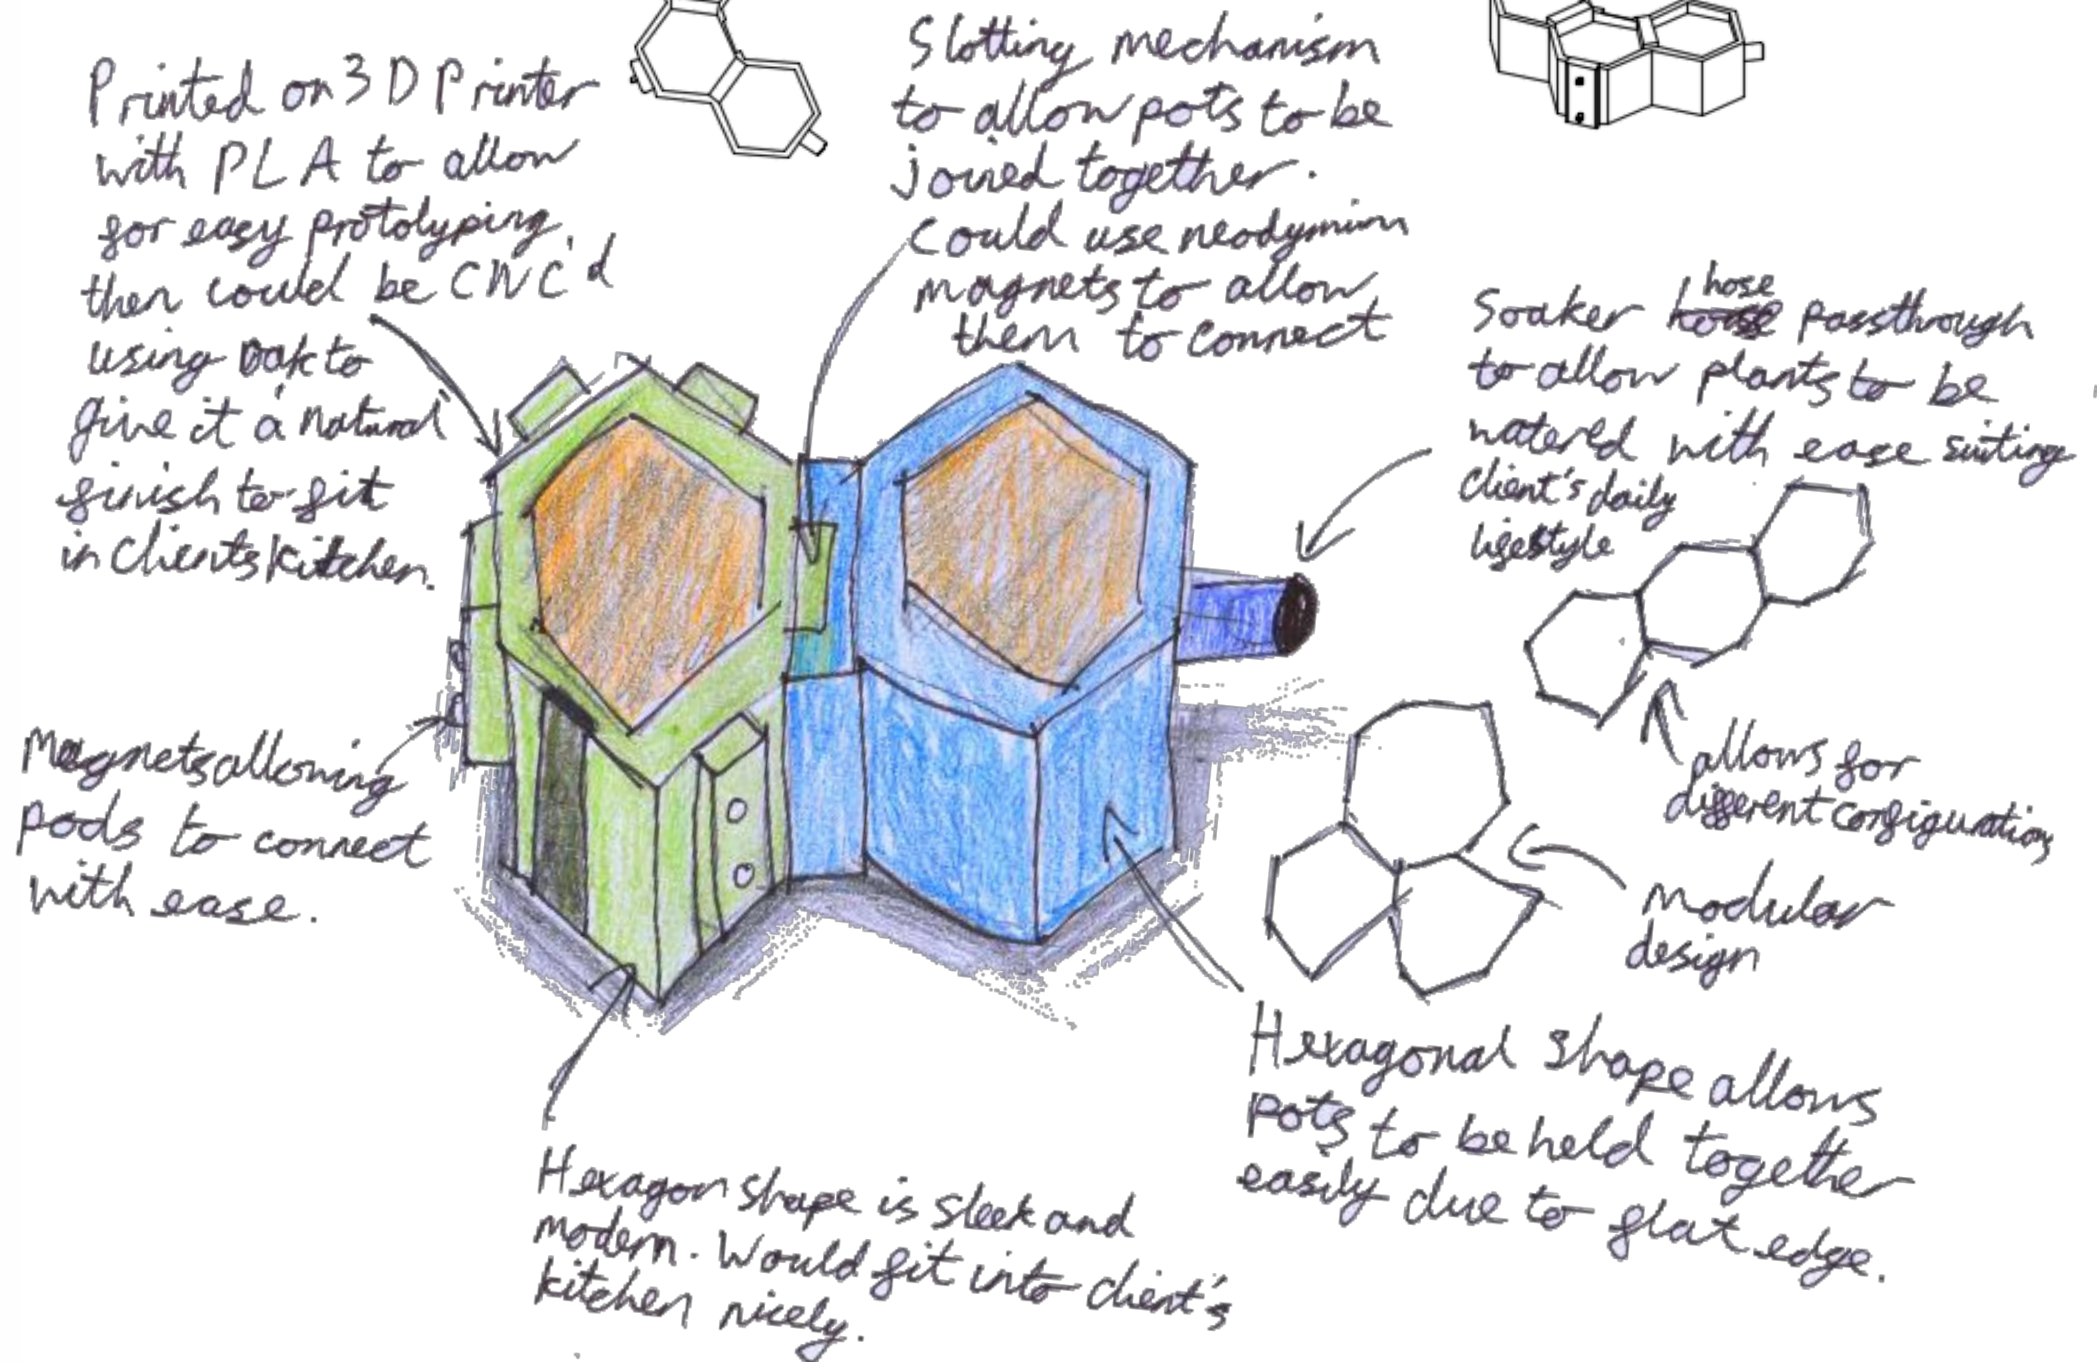 Printed on 3D Printer
with PLA to allow
for easy prototyping,
then could be CNC'd
using oak to
give it a natural
finish to fit
in clients kitchen.
Slotting mechanism
to allow pots to be
joined together.
Could use neodymium
magnets to allow
them to connect
hose
Soaker passthrough
to allow plants to be
watered with ease suiting
client's daily
lifestyle
Magnets allowing
pods to connect
with ease.
allows for
different configurations
modular
design
Hexagonal shape allows
pots to be held together
easily due to flat edge.
Hexagon shape is sleek and
modern. Would fit into client's
kitchen nicely.